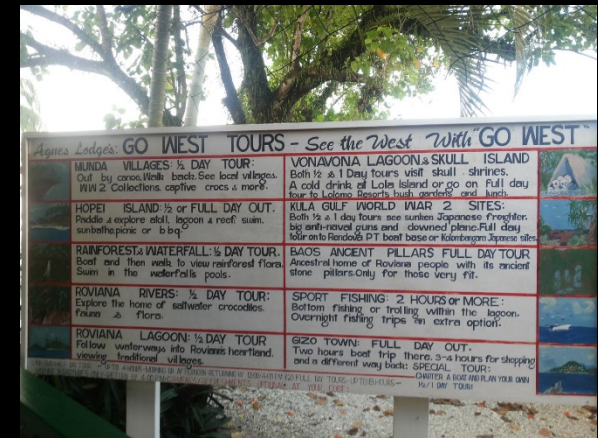 Agnes Lodge's: GO WEST TOURS - See the West With "GO WEST"
MUNDA VILLAGES: ½ DAY TOUR:
Out by canoe. Walk back. See local villages.
WW2 Collections, captive crocs & more.
HOPEI ISLAND: ½ OR FULL DAY OUT.
Paddle & explore atoll, lagoon & reef; swim.
sunbathe, picnic or b b q.
RAINFOREST & WATERFALL: ½ DAY TOUR.
Boat and then walk to view rainforest flora.
Swim in the waterfalls pools.
ROVIANA RIVERS: ½ DAY TOUR:
Explore the home of saltwater crocodiles.
fauna & flora.
ROVIANA LAGOON: ½ DAY TOUR
Follow waterways into Roviana's heartland.
viewing traditional villages.
VONAVONA LAGOON & SKULL ISLAND
Both ½ & 1 Day Tours visit skull shrines.
A cold drink at Lola Island or go on Full day
tour to Lolomo Resorts bush gardens and lunch.
KULA GULF WORLD WAR 2 SITES:
Both ½ & 1 day tours see sunken Japanese freighter.
big anti-naval guns and downed plane. Full day
tour on to Rendova PT boat base or Kolombangara Japanese sites.
BAOS ANCIENT PILLARS FULL DAY TOUR
Ancestral home of Roviana people with its ancient
stone pillars. Only for those very fit.
SPORT FISHING: 2 HOURS OR MORE:
Bottom fishing or trolling within the lagoon.
Overnight fishing trips an extra option.
GIZO TOWN: FULL DAY OUT.
Two hours boat trip there. 3-4 hours for shopping
and a different way back: SPECIAL TOUR:
CHARTER A BOAT AND PLAN YOUR OWN
½ / 1 DAY TOUR!